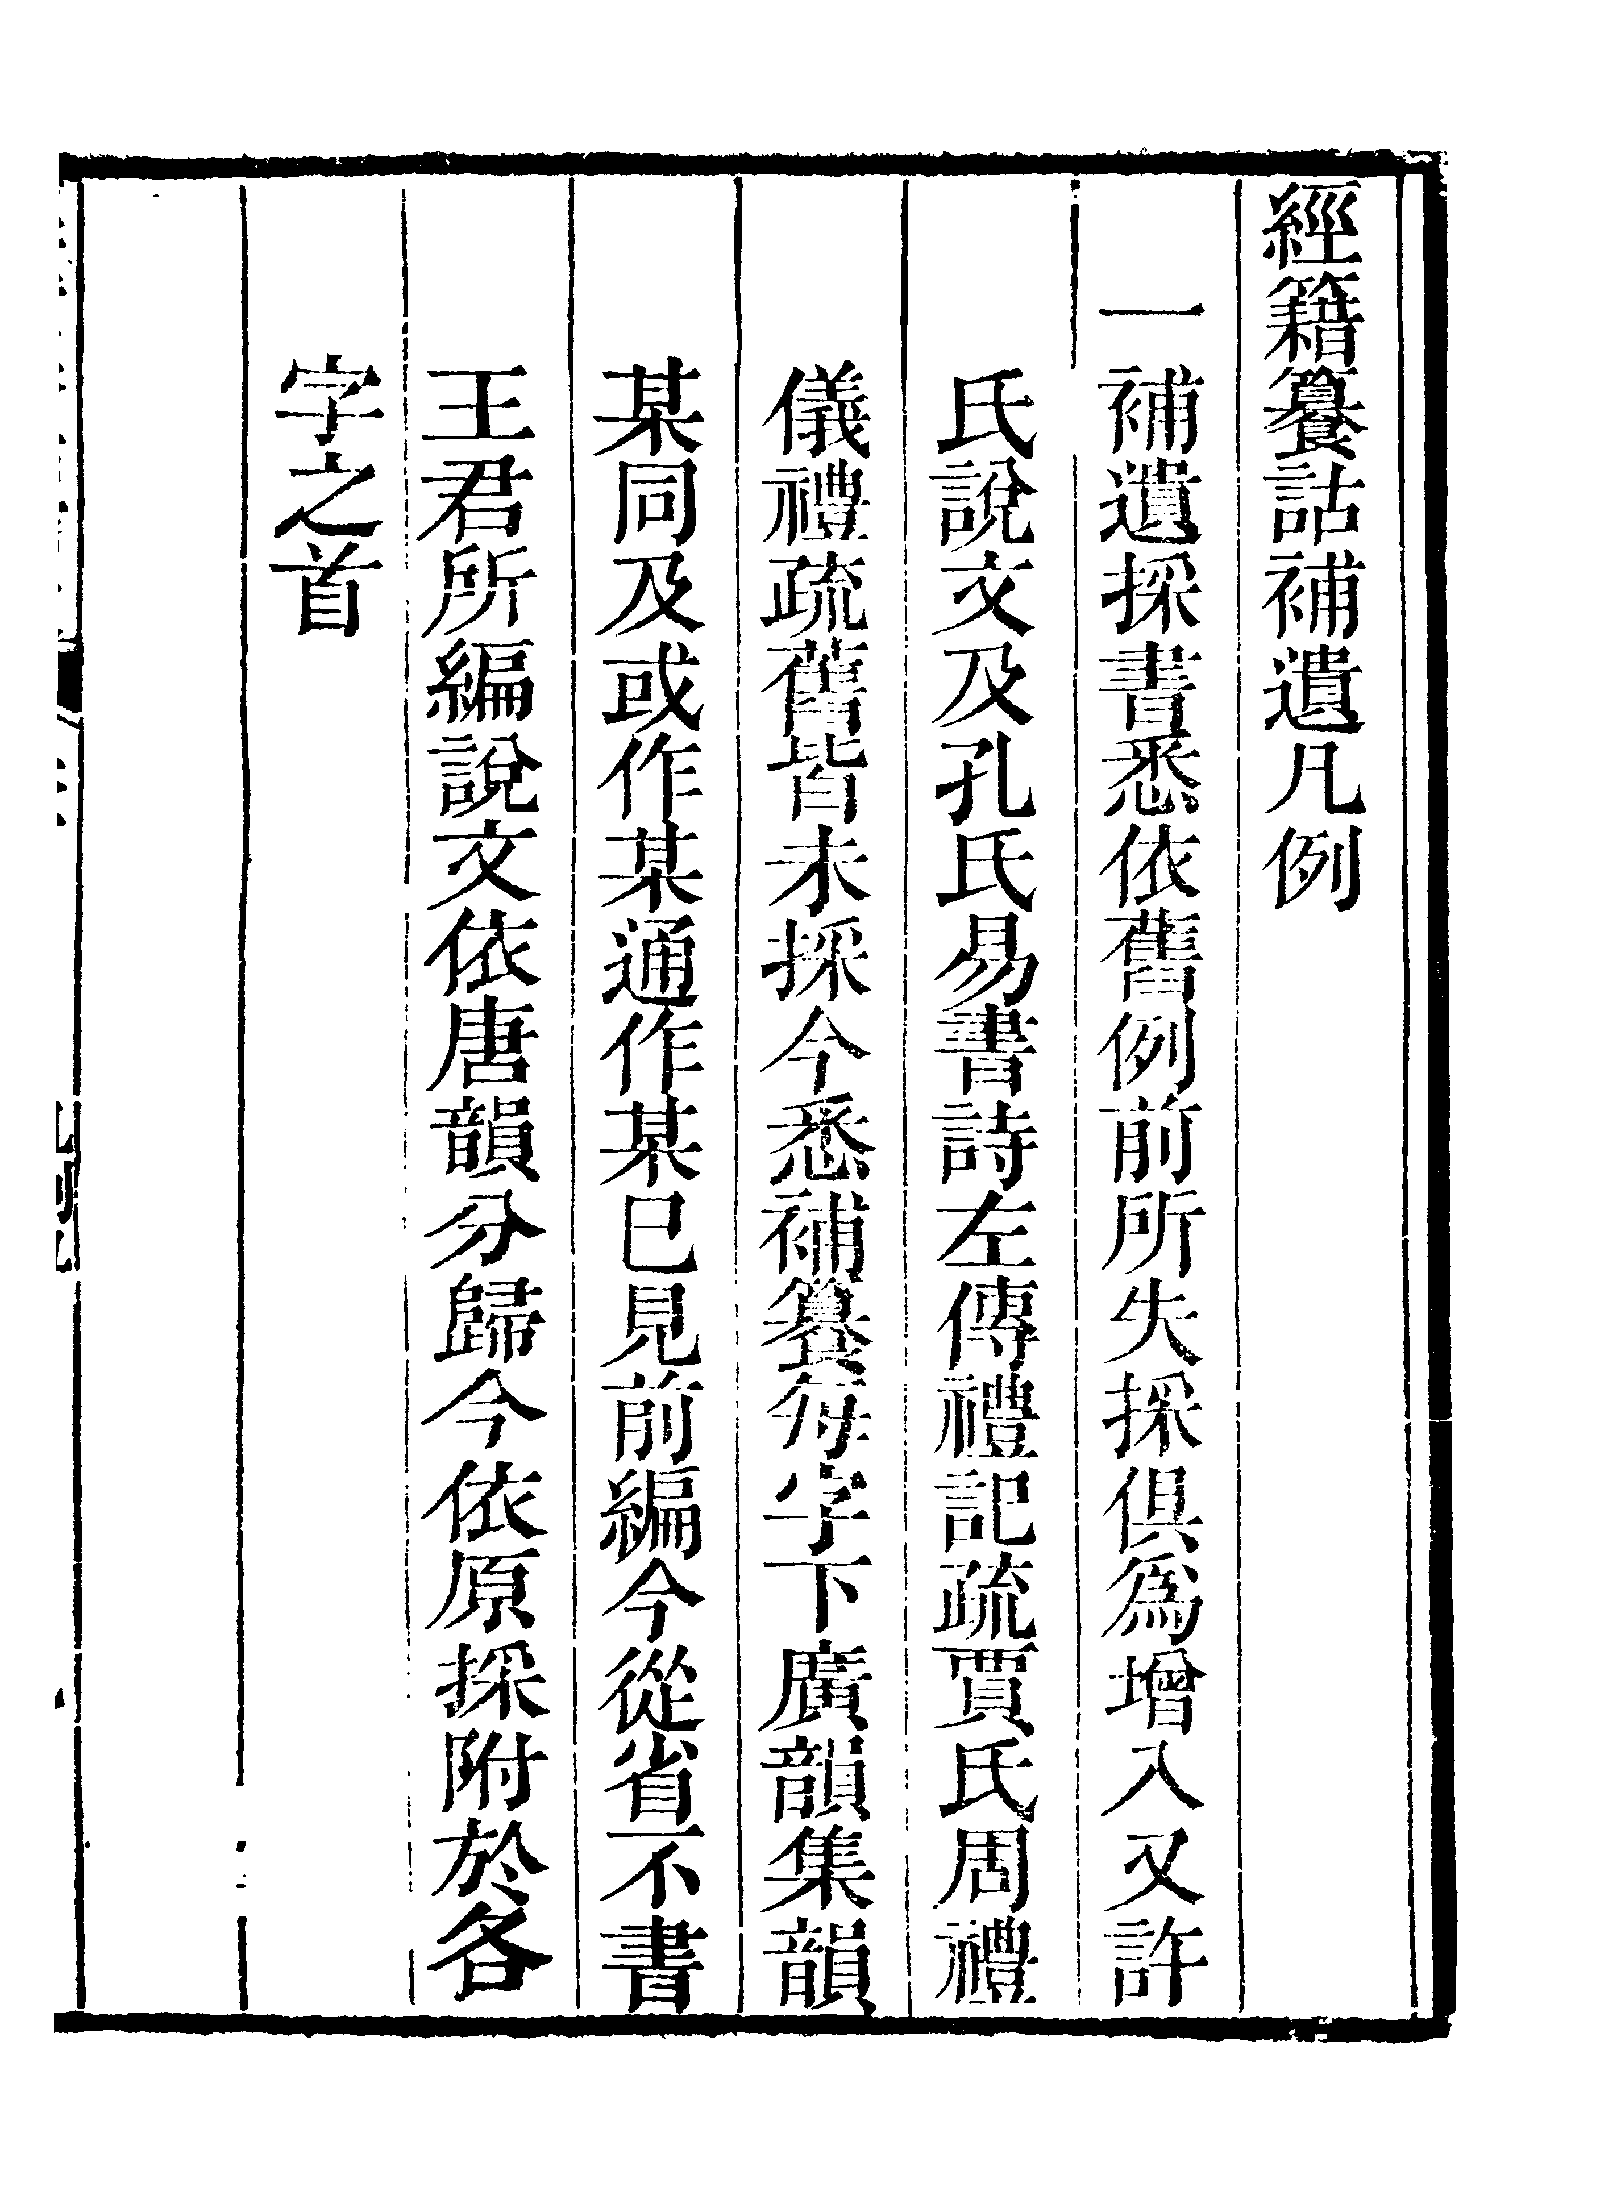 經籍籑詁補遺凡例
一補遺採書悉依舊例前所失採俱爲增入又許
氏說文及孔氏易書詩左傳禮記疏賈氏周禮
儀禮疏舊皆未採今悉補籑每字下廣韻集韻
某同及或作某通作某已見前編今從省不書
王君所編說文依唐韻分歸今依原採附於各
字之首